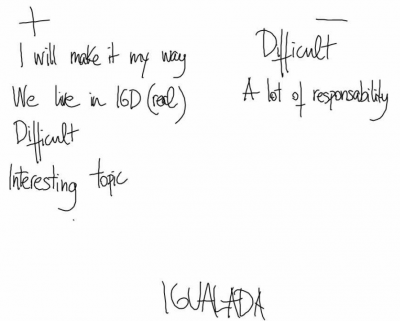 +
I will make it my way
We live in IGD (real)
Difficult
Interesting topic
—
Difficult
A lot of responsability
IGUALADA